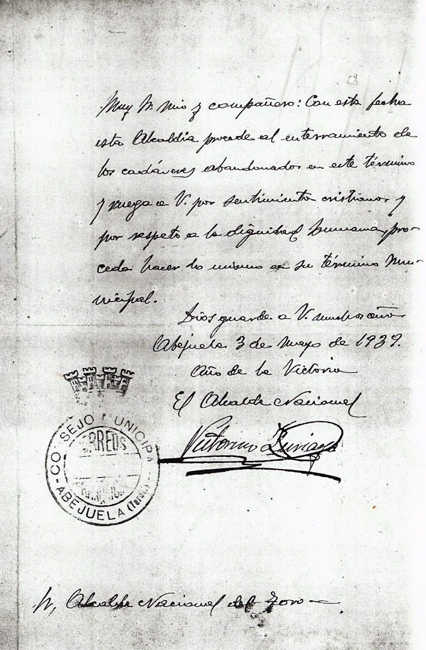 Muy Sr. mio y compañero: Con esta fecha
esta Alcaldia procede al enterramiento de
los cadáveres abandonados en este término
y ruega a V. por sentimientos cristianos y
por respeto a la dignidad humana, pro-
ceda hacer lo mismo en su término Mu-
nicipal.
Dios guarde a V. muchos años
Abejuela 3 de Mayo de 1939.
Año de la Victoria
El Alcalde Nacional
CONSEJO MUNICIPAL
ABEJUELA (Teruel)
Sr. Alcalde Nacional del Toro